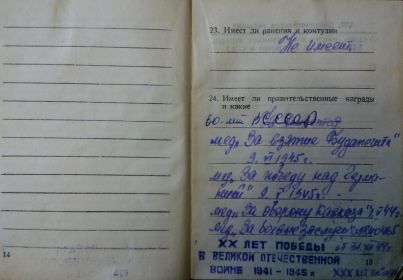 14
23. Имеет ли ранения и контузии
Не имеет
24. Имеет ли правительственные награды
и какие
60-лет ВС СССР
мед. „За взятие Будапешта"
9. VI 1945г.
мед. „За победу над Герма-
нией" 9. V 1945г. -
мед. „За оборону Кавказа" 1. V 44г.
мед. „За боевые заслуги"
от 31. XII 44г.
XX ЛЕТ ПОБЕДЫ
В ВЕЛИКОЙ ОТЕЧЕСТВЕННОЙ
ВОЙНЕ 1941-1945 г.
15
XXX лет